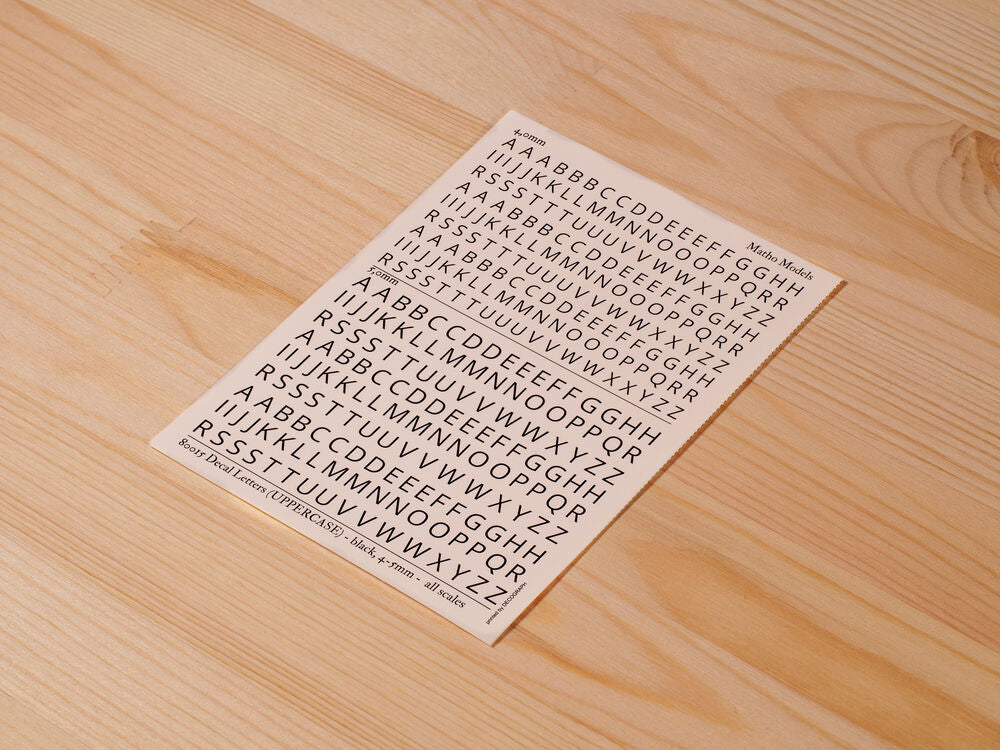 Matho Models
4,0mm
AAABBBCCDDEEEFFGGHH
IIIJJKKLLMMNNOOOPPQRR
RSSSTTTUUUVVWWXXYZZ
AAABBBCCDDEEEFFGGHH
IIIJJKKLLMMNNOOOPPQRR
RSSSTTTUUUVVWWXXYZZ
AAABBBCCDDEEEFFGGHH
IIIJJKKLLMMNNOOOPPQRR
RSSSTTTUUUVVWWXXYZZ
5,0mm
AABBCCDDEEEFFGGHH
IIJJKKLLMMNNOOPPQR
RSSSTTUUVVWWXYZZ
AABBCCDDEEEFFGGHH
IIJJKKLLMMNNOOPPQR
RSSSTTUUVVWWXYZZ
AABBCCDDEEEFFGGHH
IIJJKKLLMMNNOOPPQR
RSSSTTUUVVWWXYZZ
80015 Decal Letters (UPPERCASE) - black, 4-5mm - all scales
printed by DECOGRAPH